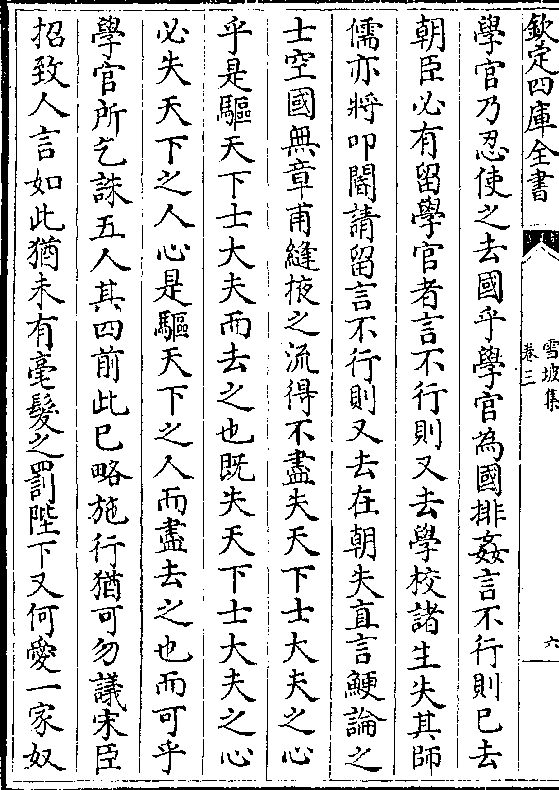 欽定四庫全書
雪坡集
卷三
六
學官乃忍使之去國乎學官為國排姦言不行則已去
朝臣必有留學官者言不行則又去學校諸生失其師
儒亦將叩閽請留言不行則又去在朝失直言鯁論之
士空國無章甫縫掖之流得不盡失天下士大夫之心
乎是驅天下士大夫而去之也既失天下士大夫之心
必失天下之人心是驅天下之人而盡去之也而可乎
學官所乞誅五人其四前此已略施行猶可勿議宋臣
招致人言如此猶未有毫髮之罰陛下又何愛一家奴